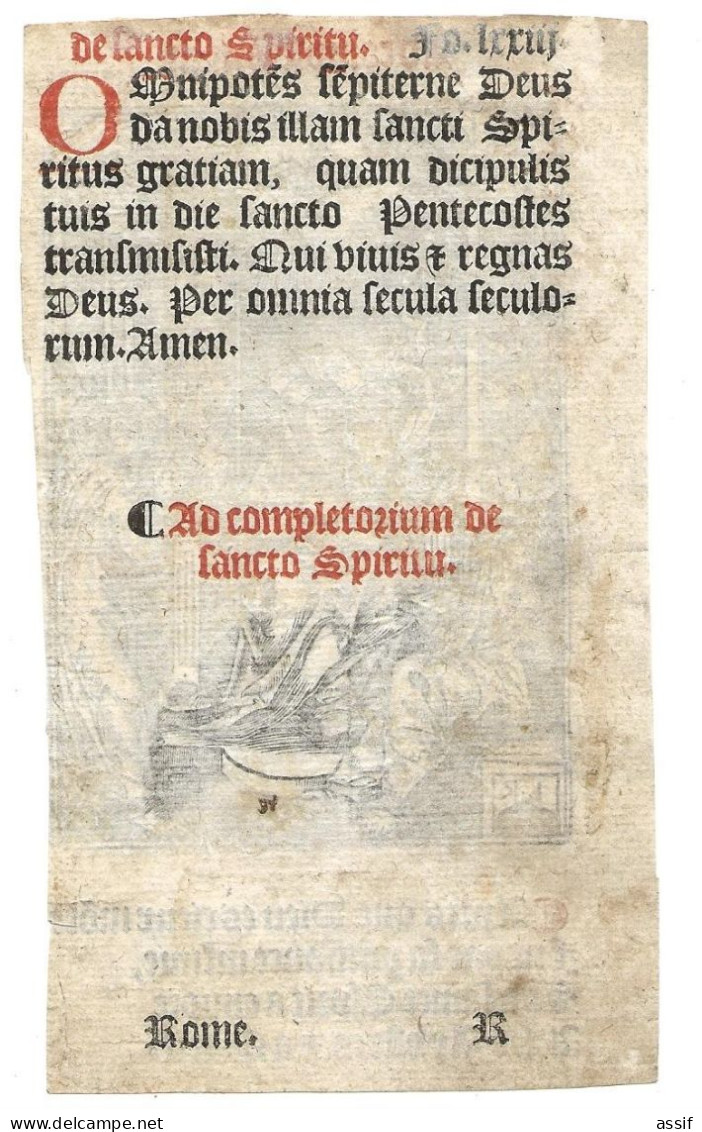 de sancto Spiritu. Fo. lxxiij.
OMnipotẽs sẽpiterne Deus
da nobis illam sancti Spi=
ritus gratiam, quam dicipulis
tuis in die sancto Pentecostes
transmisisti. Qui viuis & regnas
Deus. Per omnia secula seculo=
rum. Amen.
¶ Ad completorium de
sancto Spiritu.
Rome. R
assif